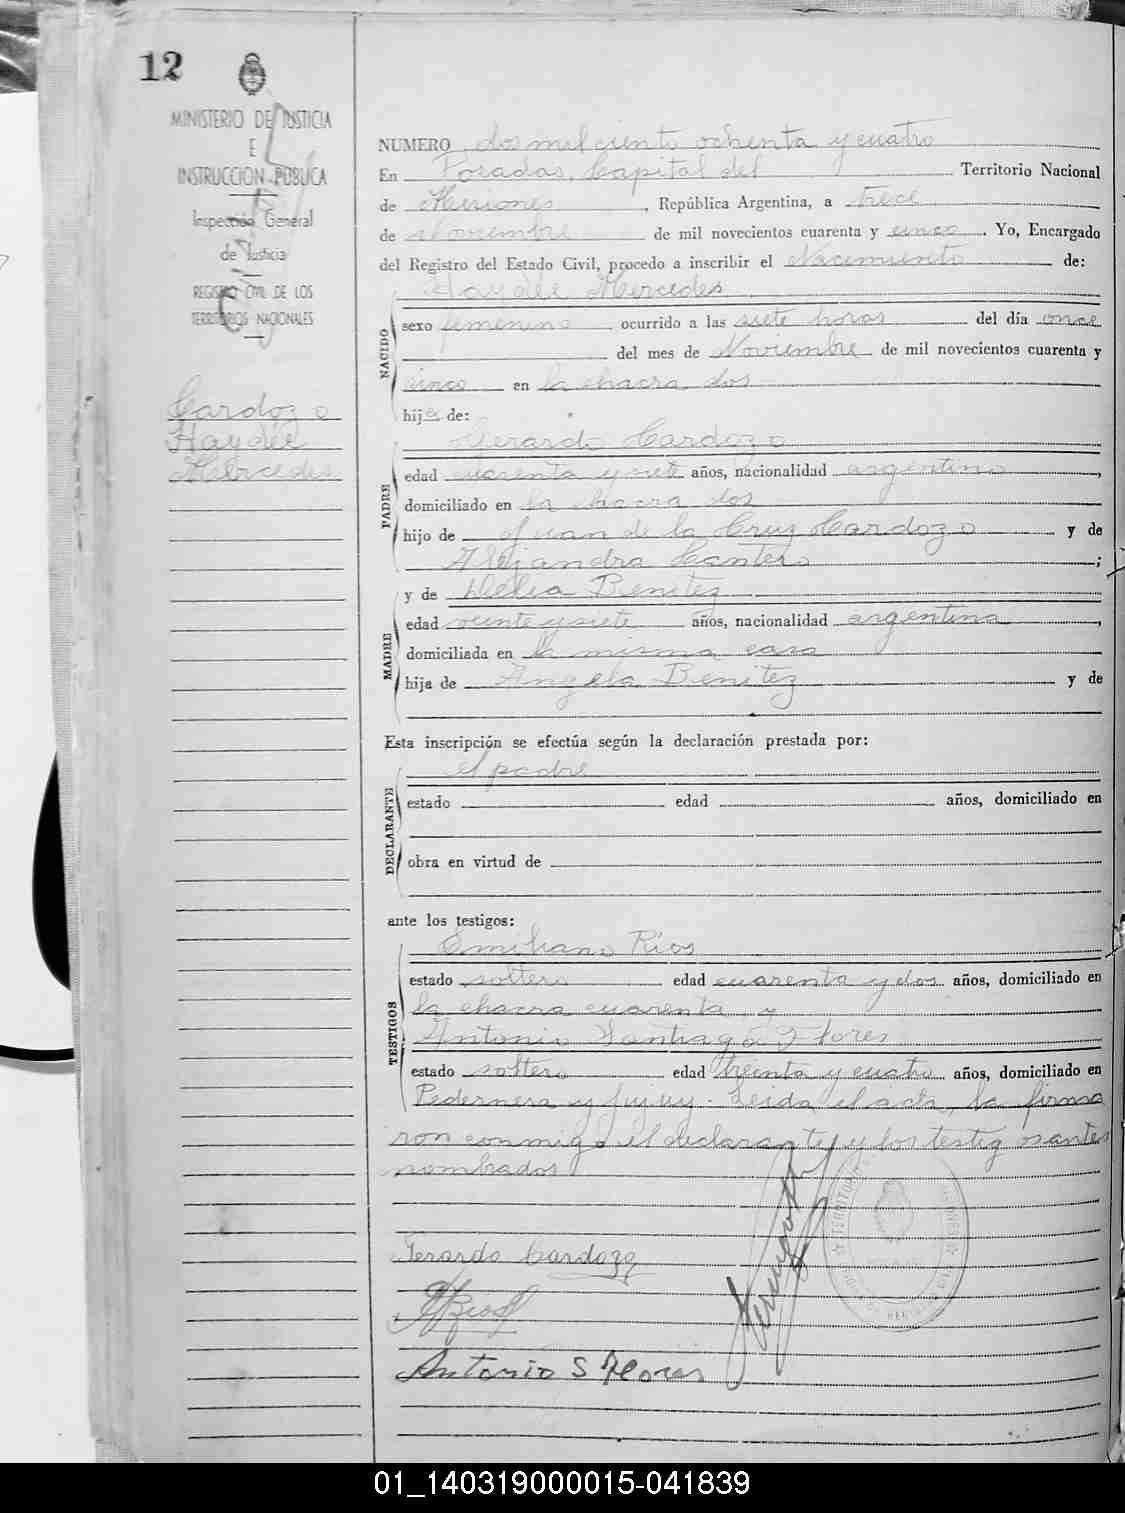 12
MINISTERIO DE JUSTICIA
E
INSTRUCCION PUBLICA
Inspección General
de Justicia
REGISTRO CIVIL DE LOS
TERRITORIOS NACIONALES
Cardozo
Haydée
Mercedes
NUMERO dos mil ciento ochenta y cuatro
En Posadas, Capital del Territorio Nacional
de Misiones, República Argentina, a trece
de Noviembre de mil novecientos cuarenta y cinco. Yo, Encargado
del Registro del Estado Civil, procedo a inscribir el Nacimiento de:
Haydée Mercedes
NACIDO
sexo femenino ocurrido a las siete horas del día once
del mes de Noviembre de mil novecientos cuarenta y
cinco en la chacra dos
hija de:
Gerardo Cardozo
PADRE
edad cuarenta y siete años, nacionalidad argentina,
domiciliado en la chacra dos
hijo de Juan de la Cruz Cardozo y de
Alejandra Cantero;
y de Delia Benitez
MADRE
edad veinte y siete años, nacionalidad argentina,
domiciliada en la misma casa
hija de Angela Benitez y de
Esta inscripción se efectúa según la declaración prestada por:
el padre
DECLARANTE
estado edad años, domiciliado en
obra en virtud de
ante los testigos:
Emiliano Rios
TESTIGOS
estado soltero edad cuarenta y dos años, domiciliado en
la chacra cuarenta y
Antonio Santiago Flores
estado soltero edad treinta y cuatro años, domiciliado en
Pedernera y Jujuy. Leida el acta, la firma
ron conmigo el declarante y los testigos antes
nombrados
Gerardo Cardozo
Antonio S Flores
01_140319000015-041839